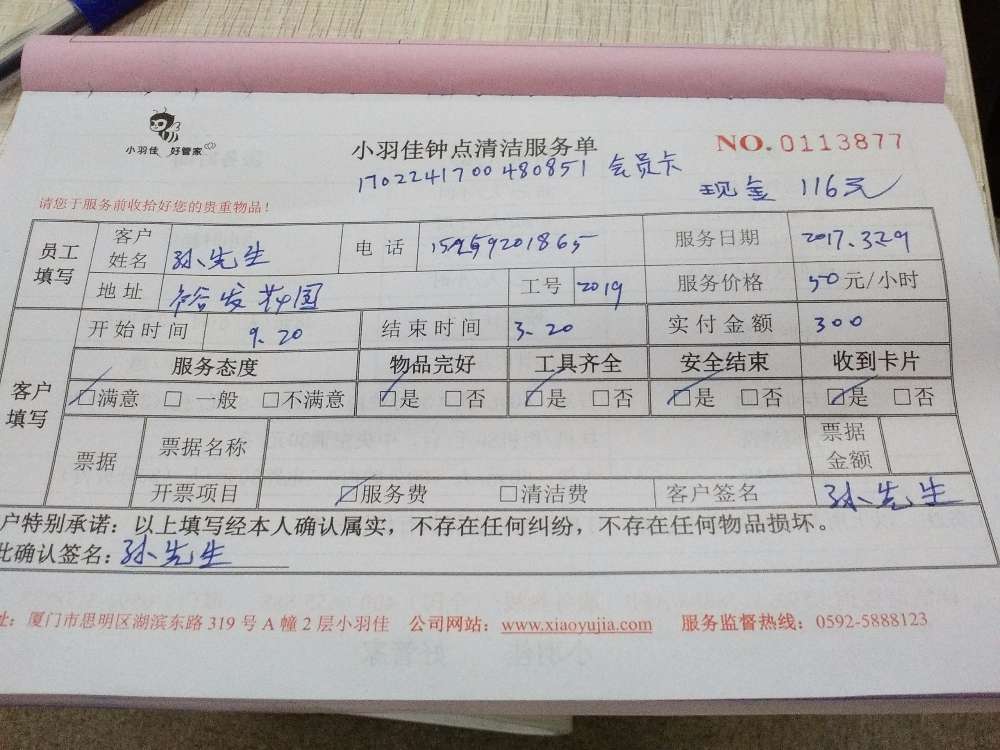 小羽佳 好管家
小羽佳钟点清洁服务单
NO. 0113877
1702241700480851 会员卡
现金 116元
请您于服务前收拾好您的贵重物品！
员工填写 客户姓名 孙先生 电话 15959201865 服务日期 2017.3.29
地址 裕发花园 工号 2019 服务价格 50元/小时
客户填写 开始时间 9.20 结束时间 3.20 实付金额 300
服务态度 物品完好 工具齐全 安全结束 收到卡片
☑满意 □一般 □不满意 ☑是 □否 ☑是 □否 ☑是 □否 ☑是 □否
票据 票据名称 票据金额
开票项目 ☑服务费 □清洁费 客户签名 孙先生
户特别承诺：以上填写经本人确认属实，不存在任何纠纷，不存在任何物品损坏。
此确认签名：孙先生
址：厦门市思明区湖滨东路 319 号 A 幢 2 层小羽佳 公司网站：www.xiaoyujia.com 服务监督热线：0592-5888123